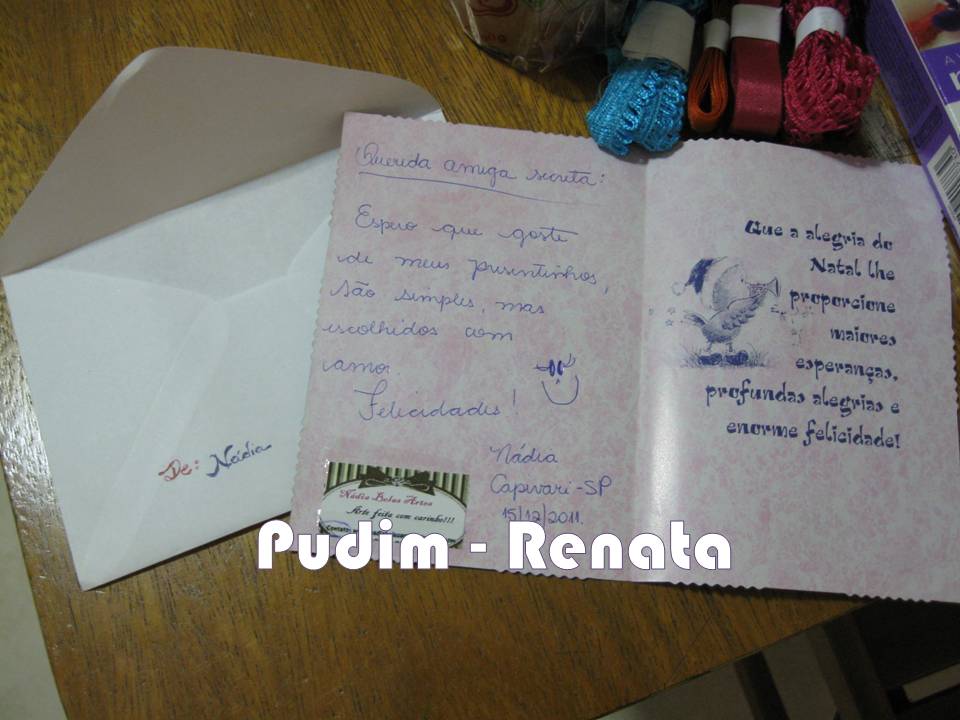 Querida amiga secreta:
Espero que goste
de meus presentinhos,
são simples, mas
escolhidos com
amor.
Felicidades!
Nádia
Capivari-SP
15/12/2011.
Nádia Belas Artes
Arte feita com carinho!!!
Contato:
Que a alegria do
Natal lhe
proporcione
maiores
esperanças,
profundas alegrias e
enorme felicidade!
De: Nádia
Pudim - Renata